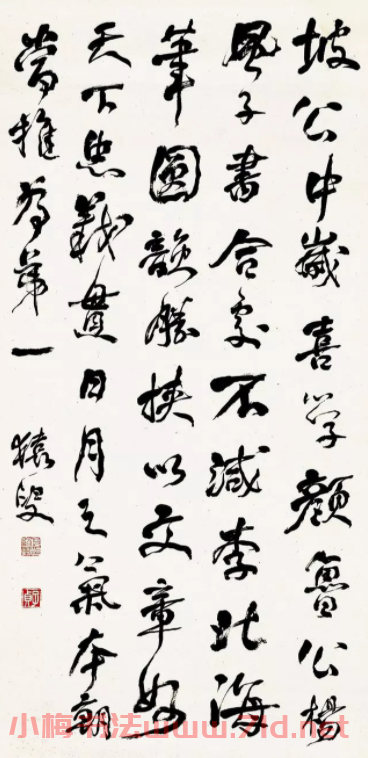 坡公中歲喜学顏魯公楊
風子書合處不減李北海
筆圓韻勝挾以文章妙
天下忠義貫日月之氣本朝
當推為第一
猿叟
小梅书法